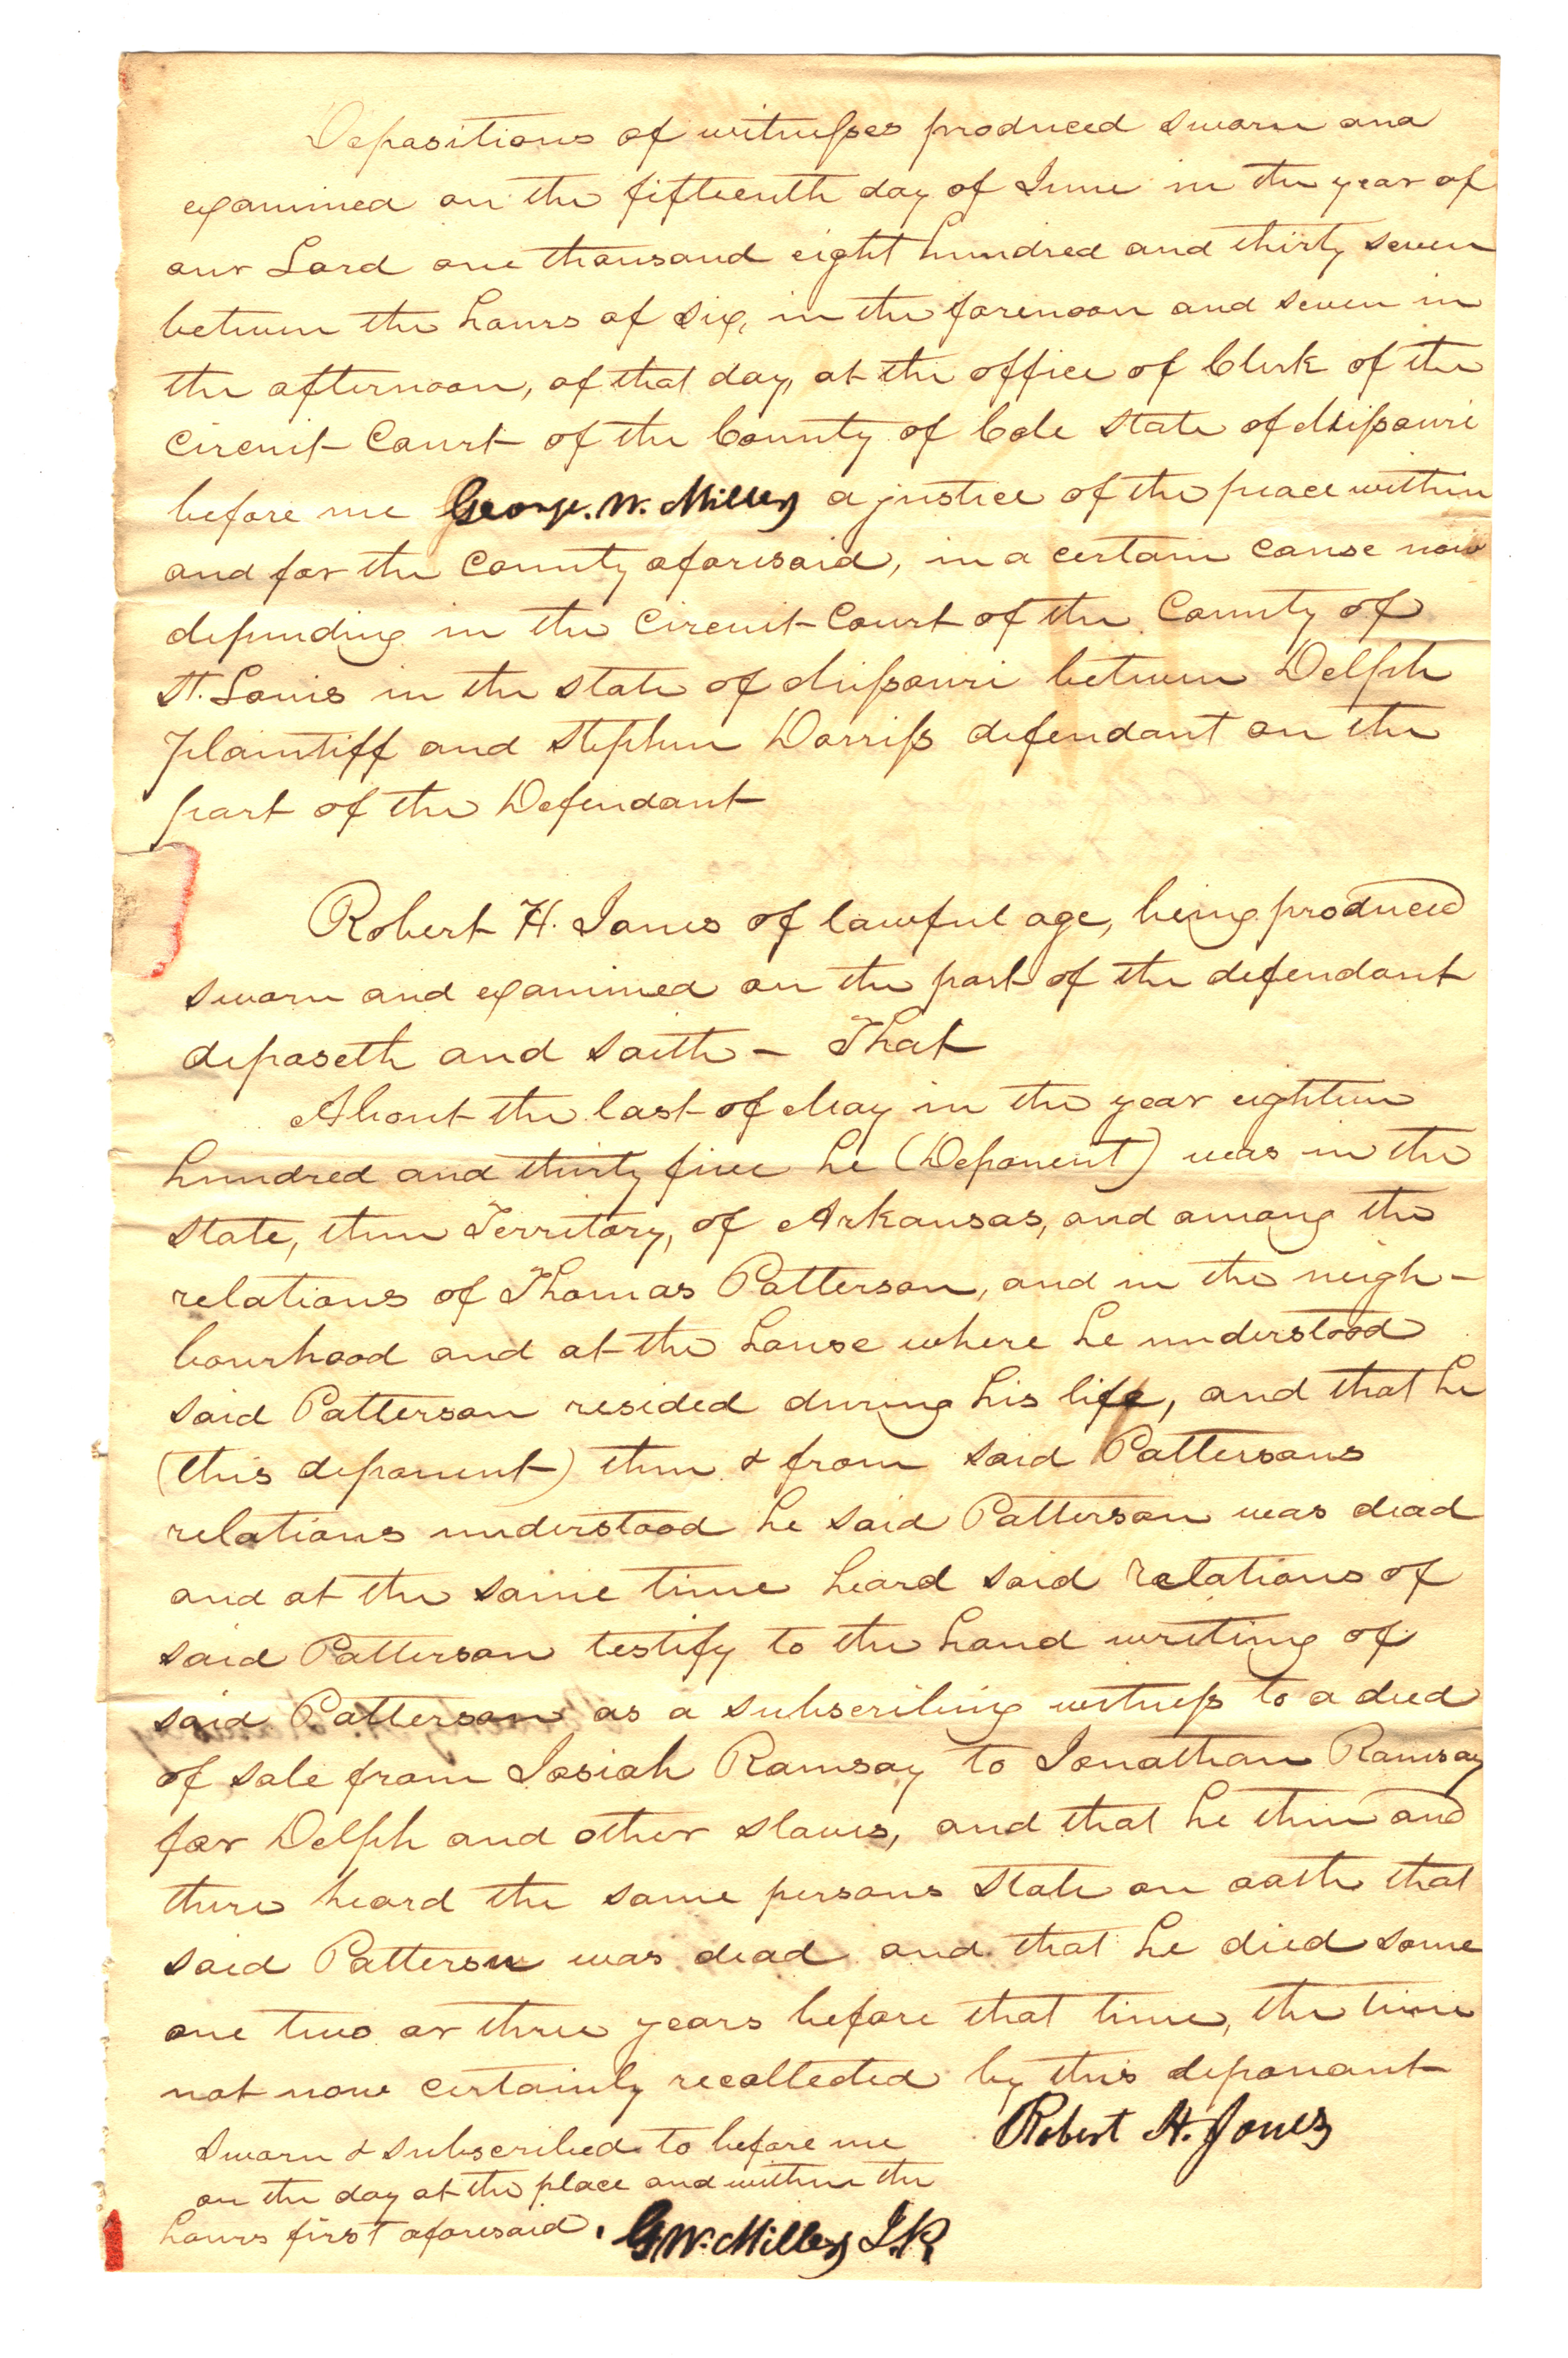 Depositions of witnesses produced sworn and
examined on the fifteenth day of June in the year of
our Lord one thousand eight hundred and thirty seven
between the hours of six, in the forenoon and seven in
the afternoon, of that day, at the office of Clerk of the
Circuit Court of the County of Cole State of Missouri
before me George. W. Miller a justice of the peace within
and for the County aforesaid, in a certain cause now
depending in the Circuit Court of the County of
St. Louis in the State of Missouri between Delph
plaintiff and Stephen Dorriss defendant on the
part of the Defendant
Robert H. Jones of lawful age, being produced
sworn and examined on the part of the defendant
deposeth and saith – That
About the last of May in the year eighteen
hundred and thirty five he (Deponent) was in the
State, then Territory, of Arkansas, and among the
relations of Thomas Patterson, and in the neigh-
bourhood and at the house where he understood
said Patterson resided during his life, and that he
(this deponent) then & from said Pattersons
relations understood he said Patterson was dead
and at the same time heard said relations of
said Patterson testify to the hand writing of
said Patterson as a subscribing witness to a deed
of sale from Josiah Ramsay to Jonathan Ramsay
for Delph and other slaves, and that he then and
there heard the same persons state on oath that
said Patterson was dead and that he died some
one two or three years before that time, the time
not now certainly recollected by this deponant
Robert H. Jones
Sworn & subscribed to before me
on the day at the place and within the
hours first aforesaid. G. W. Miller J.P.